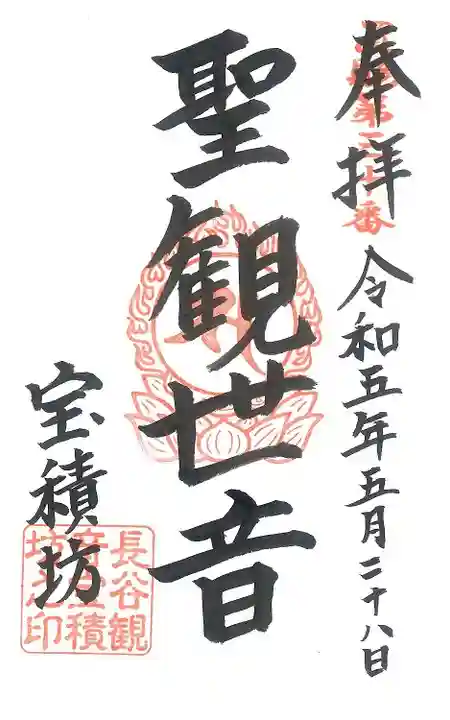 奉拝
令和五年五月二十八日
聖観世音
宝積坊
長谷観
音宝積
坊之印